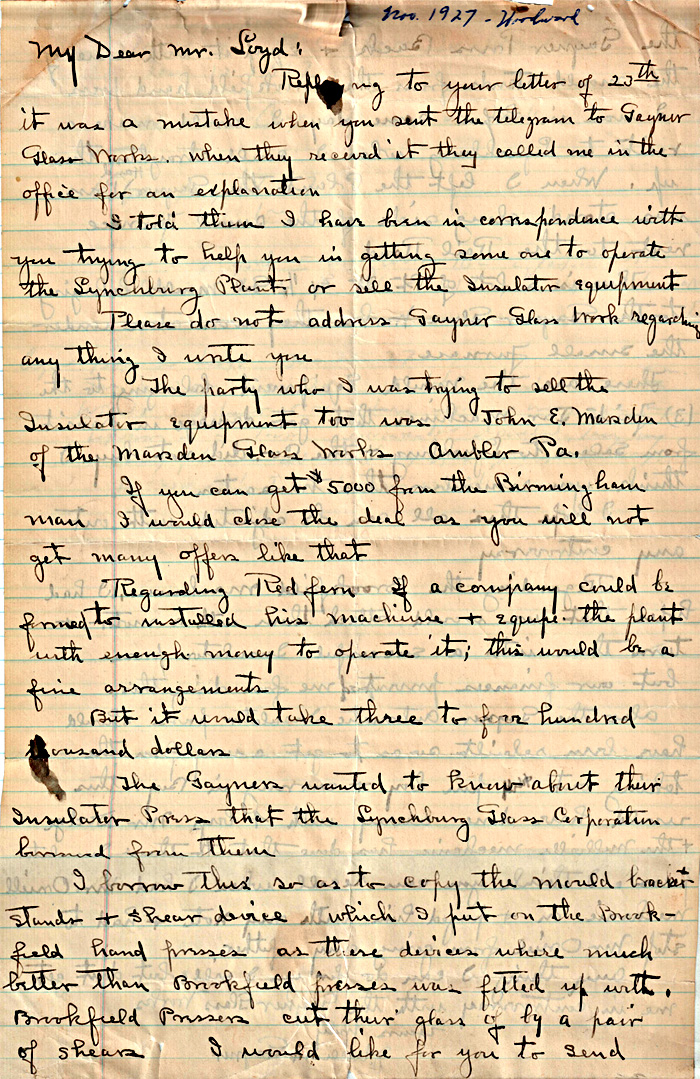 Nov. 1927 - Woodward
My Dear Mr. Loyd:
Replying to your letter of 23th
it was a mistake when you sent the telegram to Gayner
Glass Works. when they received it they called me in the
office for an explanation
I told them I have been in correspondence with
you trying to help you in getting some one to operate
the Lynchburg Plant or sell the Insulator equipment
Please do not address Gayner Glass Work regarding
any thing I write you
The party who I was trying to sell the
Insulator equipment too was John E. Marsden
of the Marsden Glass Works Ambler Pa.
If you can get $5000 from the Birmingham
man I would close the deal as you will not
get many offers like that
Regarding Redfern If a company could be
formed to installed his machine + equipe. the plant
with enough money to operate it; this would be a
fine arrangements
But it would take three to four hundred
thousand dollars
The Gayners wanted to know about their
Insulator Press that the Lynchburg Glass Corporation
borrowed from them
I borrow this so as to copy the mould bracket
stands + shear device which I put on the Brook-
field hand presses as these devices where much
better than Brookfield presses was fitted up with.
Brookfield Pressers cut their glass of by a pair
of shears I would like for you to send